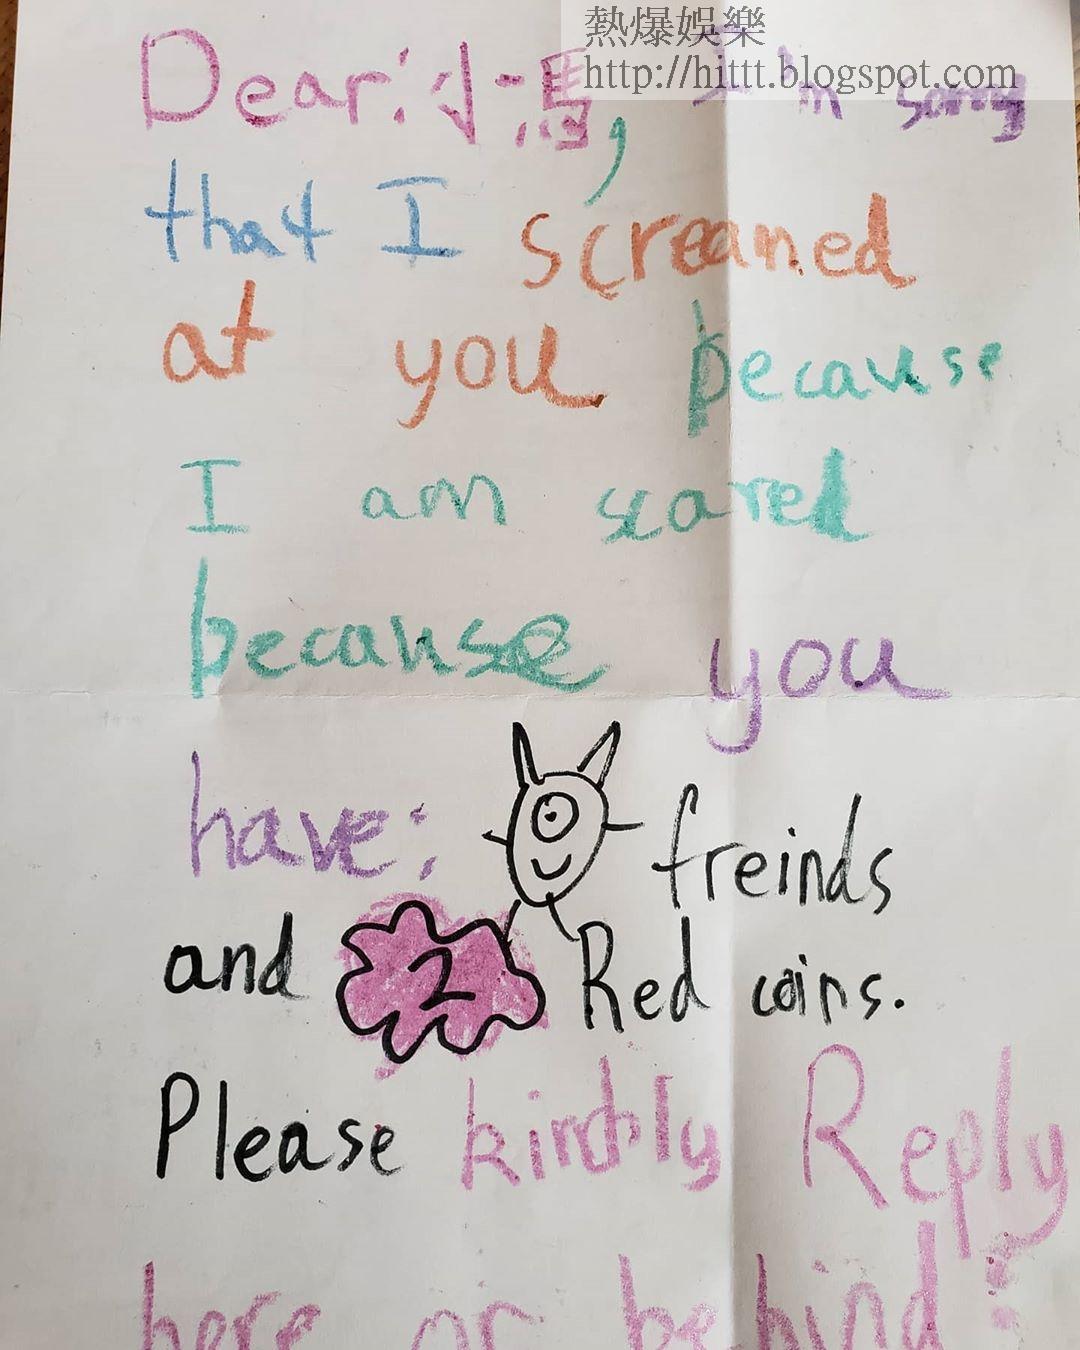 熱爆娛樂
http://hittt.blogspot.com
Dear: 小馬, I'm sorry
that I screamed
at you because
I am scared
because you
have: freinds
and 2 Red coins.
Please kindly Reply
here or behind: